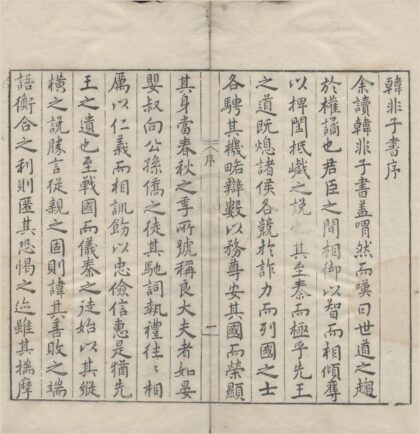 韓非子書序
余讀韓非子書蓋喟然而嘆曰世道之趨
於權譎也君臣之間相御以智而相傾奪
以捭闔抵巇之說也其至秦而極乎先王
之道既熄諸侯各競於詐力而列國之士
各騁其機略辯數以務尊安其國而榮顯
序
一
其身當春秋之季所號稱良大夫者如晏
嬰叔向公孫僑之徒其馳詞執禮往〻相
厲以仁義而相訓飭以忠儉信惠是猶先
王之遺也至戰國而儀秦之徒始以其縱
橫之說勝言從親之固則諱其善敗之端
語衡合之利則匿其恐愒之迹雖其揣摩